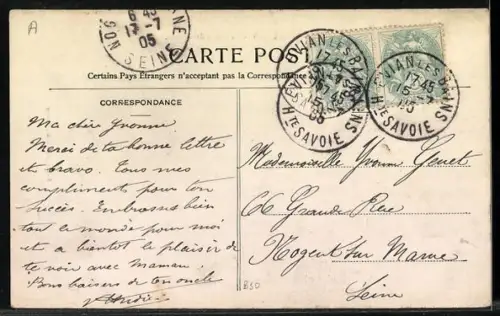 A
MARNE
6 45
17 -7
05
SEINE
CARTE POSTALE
Certains Pays Etrangers n'acceptent pas la Correspondance
EVIAN LES BAINS
17 45
15 -7
05
Hte SAVOIE
EVIAN LES BAINS
17 45
15
05
Hte SAVOIE
CORRESPONDANCE
Ma chère Yvonne
Merci de ta bonne lettre
et bravo. Tous mes
compliments pour ton
succès. Embrasses bien
tout le monde pour moi
et a bientot le plaisir de
te voir avec Maman.
Bons baisers de ton oncle
Mademoiselle Yvonne
66 Grande Rue
Nogent sur Marne
Seine
B50